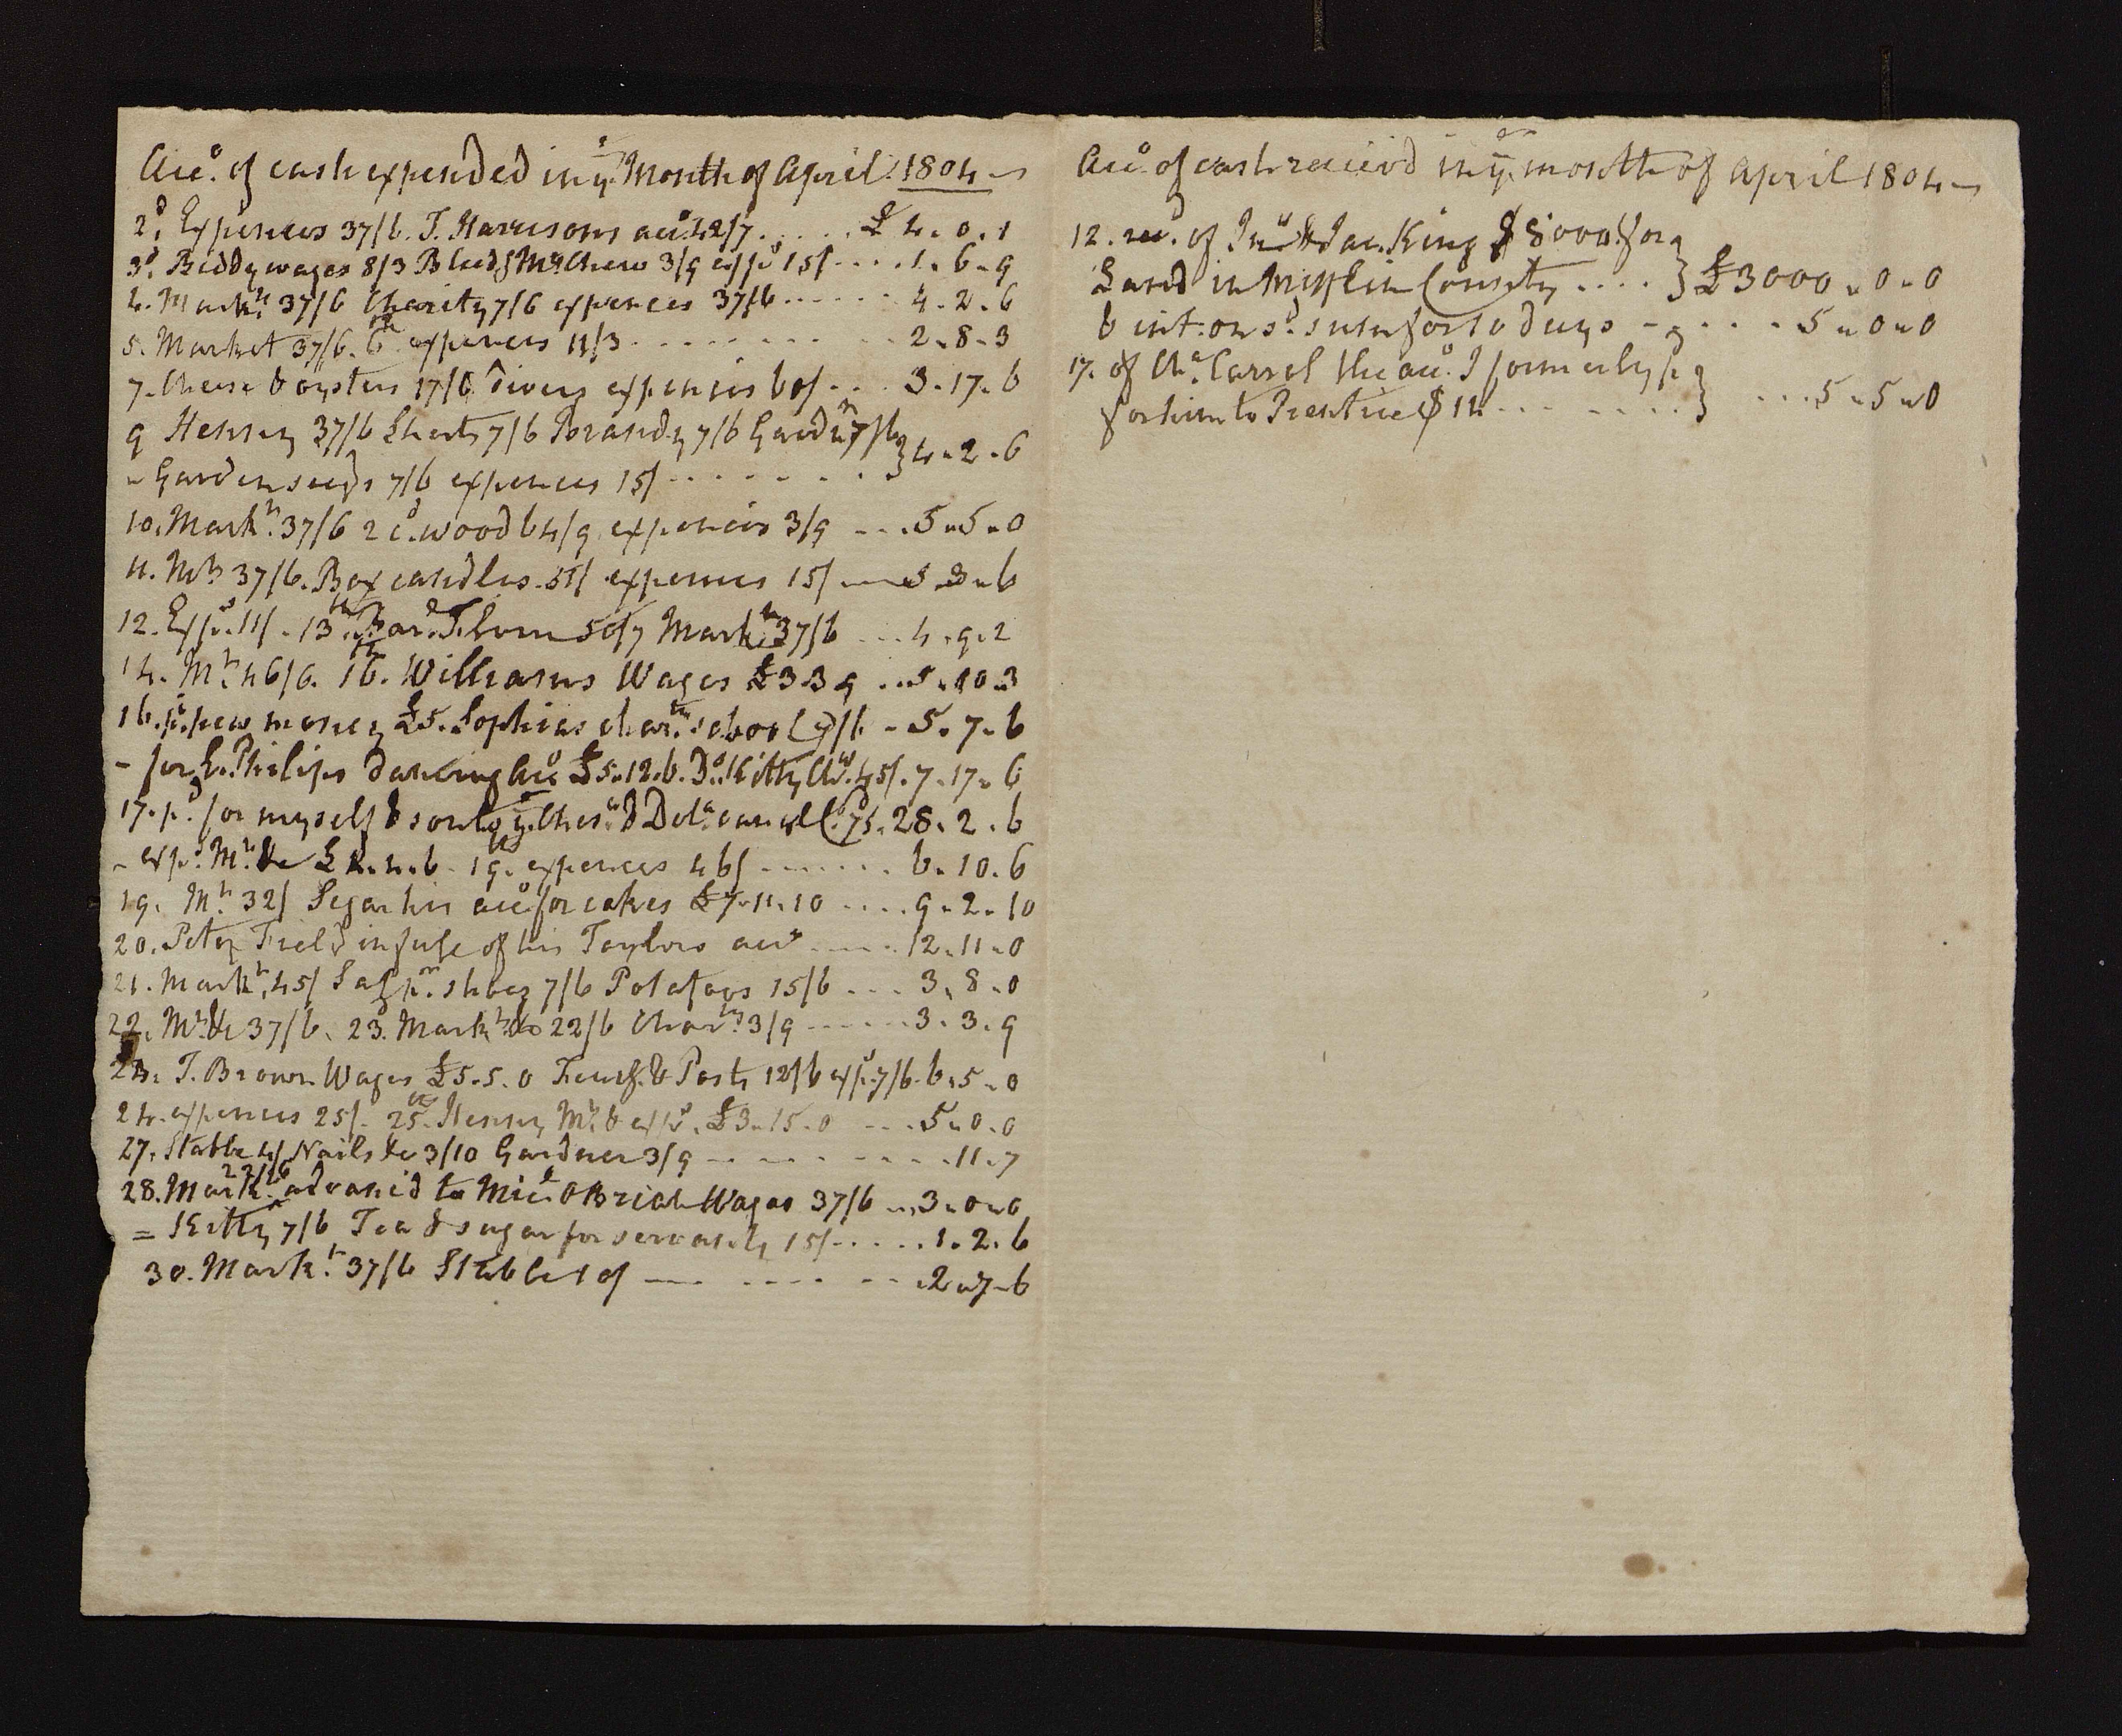 Acco. of cash expended in ye. Month of April. 1804
2d. Expences 37/6. T. Harrisons acco. 42/7 ..... £ 4. 0. 1
3d. Biddy wages 8/3 Bleedg Mrs. Chew 3/9 exps 15/ .... 1. 6. 9
4. Markt. 37/6 Charity 7/6 expences 37/6 ...... 4. 2. 6
5. Market 37/6. 6th expences 11/3 ......... 2. 8. 3
7. Cheese & oysters 17/6 Divers expences 60/ ... 3. 17. 6
9 Henry 37/6 7/6 Brandy 7/6 Gardnr 7/6
" Garden seeds 7/6 expences 15/ ....... } 4. 2. 6
10. Markt. 37/6 2 cd. wood 64/9 expences 3/9 ... 5. 5. 0
11. Mt. 37/6. Box candles 51/ expences 15/ 5. 3. 6
12. Exps. 11/. 13th. 50/7 Markt. 37/6 ... 4. 9. 2
14. Mt. 46/6. 16th. Williams Wages £3 3 9 ... 5. 10. 3
16. pd. pew money £5. Sophias charty. school 7/6 - 5. 7. 6
- for Philips dancing acco £5.12.6. Do. Kitty 45/. 7. 17. 6
17. pd. for myself & son to ye. Chese. & Dela. canal 75. 28. 2. 6
- exps. Mt. &c £4.4.6 - 19th. expences 46/ ....... 6. 10. 6
19. Mt. 32/ Segar his acco for cakes £7.11.10 .... 9. 2. 10
20. Peter Field in full of his Taylors acco ..... 12. 11. 0
21. Markt. 45/ Sal pr. shoes 7/6 Potatoes 15/6 ... 3. 8. 0
22. Mt. &c 37/6. 23. Markt. &c 22/6 Charty 3/9 ...... 3. 3. 9
23. T. Brown Wages £5.5.0 & Posts 12/6 exps. 7/6. 6. 5. 0
24. expences 25/. 25th. Henry Mt. & exps. £3.15.0 ... 5. 0. 0
27. Stable 4/ Nails &c 3/10 Gardner 3/9 ......... 11. 7
28. Markt. 22/6 advanc'd to Micl. OBrian Wages 37/6 ... 3. 0. 0
= Kitty 7/6 Tea & sugar for servants 15/ ..... 1. 2. 6
30. Markt. 37/6 Stable 10/ ......... 2. 7. 6
Acco. of cash receiv'd in ye. month of April 1804
12. recd. of Jno & Jac. King $8000. for
Land in Mifflin County .... } £3000. 0. 0
& int. on sd. sum for 10 days ..... 5. 0. 0
17. of Cha. Carrol the acco. I formerly pd
for him to Prentice $14 ........ } ... 5. 5. 0